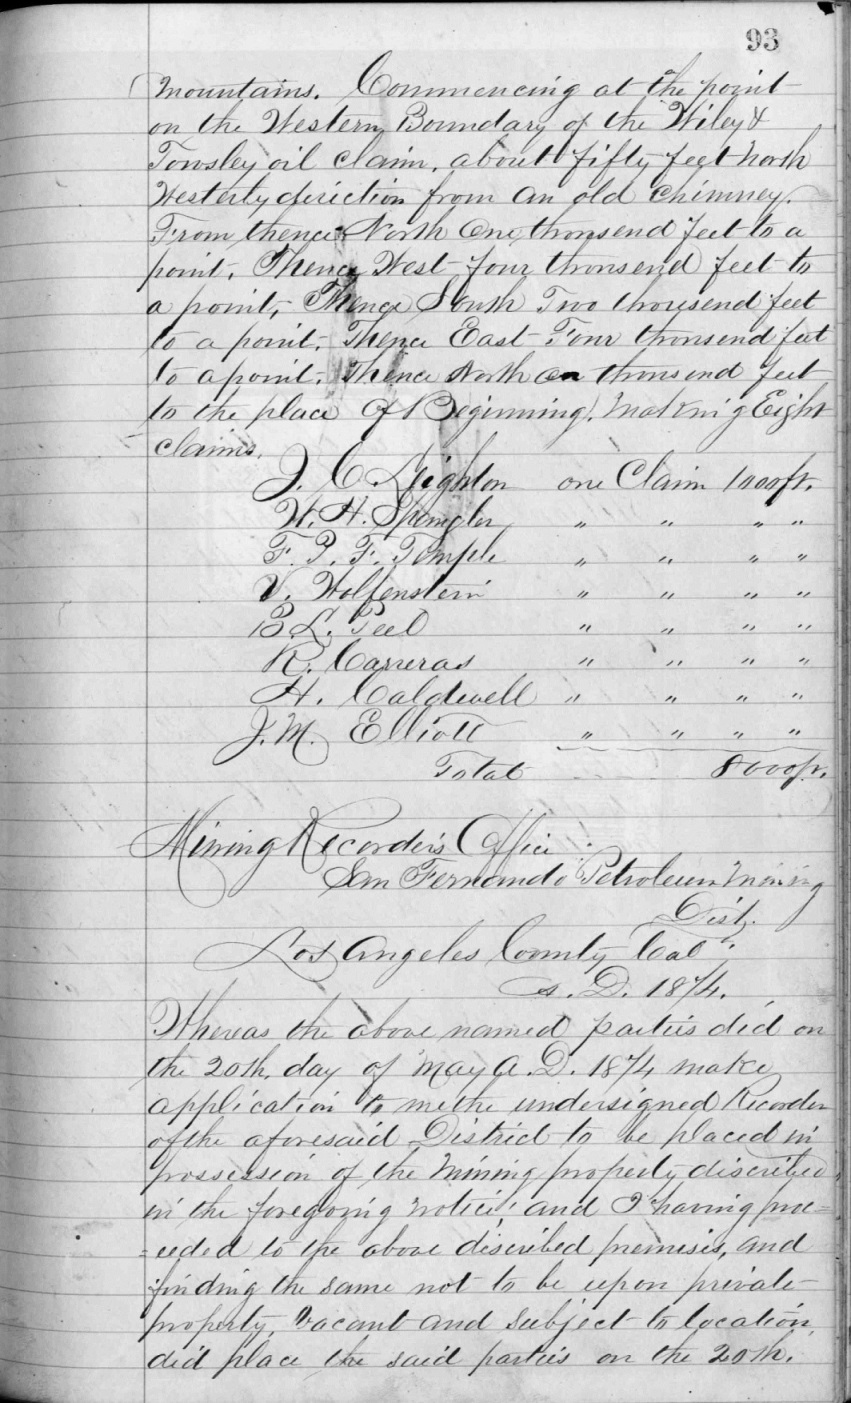 93
mountains. Commencing at the point
on the Western Boundary of the Wiley &
Towsley oil claim, about fifty feet North
Westerly direction from an old chimney.
From thence North One thousend feet to a
point, Thence West four thousend feet to
a point, Thence South Two thousend feet
to a point, Thence East Four thousend feet
to a point, Thence North on thousend feet
to the place of Beginning, making Eight
claims.
J. C. Leighton one Claim 1000ft.
W. H. Spengler " " " "
F. P. F. Temple " " " "
V. Wolfenstein " " " "
B. L. Peel " " " "
R. Carreras " " " "
H. Caldwell " " " "
J. M. Elliott " " " "
Total 8000ft.
Mining Recorder's Office
San Fernando Petroleum Mining
Dist.
Los Angeles County Cal.
A. D. 1874.
Whereas the above named parties did on
the 20th. day of May A. D. 1874 make
application to me the undersigned Recorder
of the aforesaid District to be placed in
possession of the Mining property discribed
in the foregoing notice, and I having proc=
=eeded to the above discribed premisis, and
finding the same not to be upon private
property, vacant and subject to location
did place the said parties on the 20th.